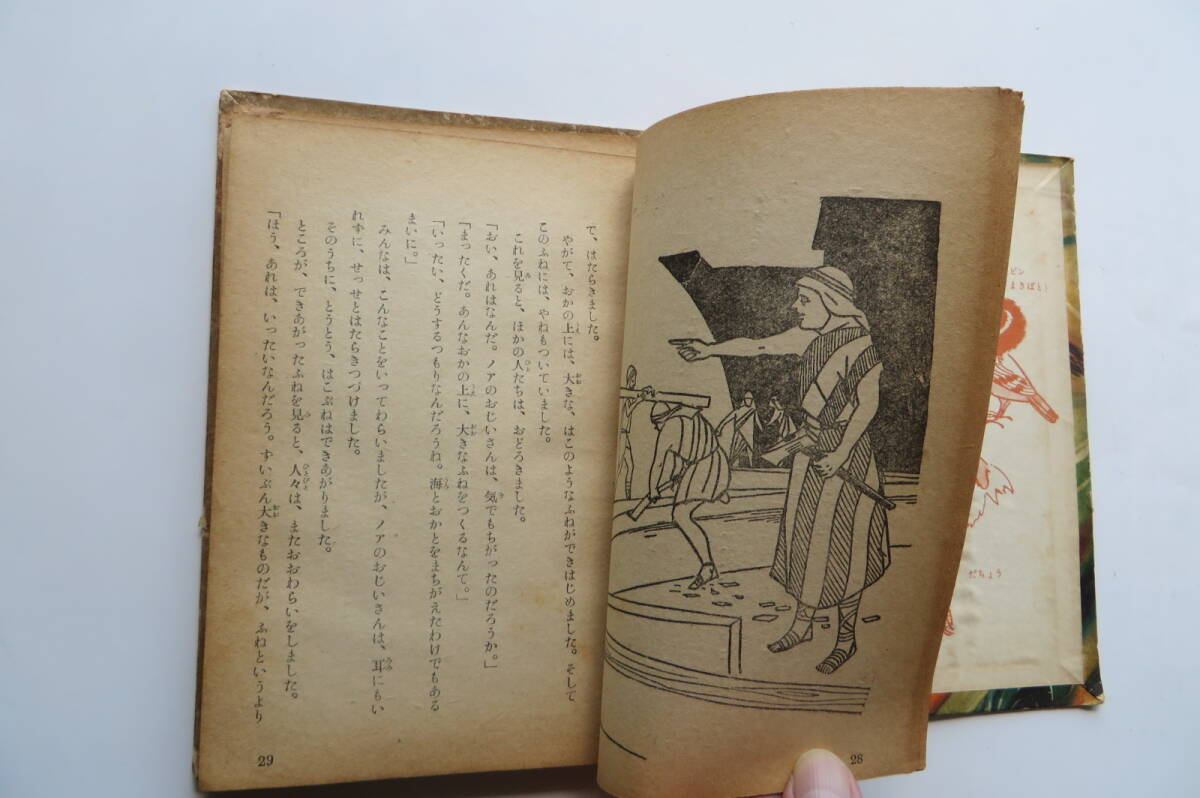 て、はたらきました。
やがて、おかの上には、大きな、はこのようなふねができはじめました。そして
このふねには、やねもついていました。
これを見ると、ほかの人たちは、おどろきました。
「おい、あれはなんだ。ノアのおじいさんは、気でもちがったのだろうか。」
「まったくだ。あんなおかの上に、大きなふねをつくるなんて。」
「いったい、どうするつもりなんだろうね。海とおかとをまちがえたわけでもある
まいに。」
みんなは、こんなことをいってわらいましたが、ノアのおじいさんは、耳にもい
れずに、せっせとはたらきつづけました。
そのうちに、とうとう、はこぶねはできあがりました。
ところが、できあがったふねを見ると、人々は、またおおわらいをしました。
「ほう、あれは、いったいなんだろう。ずいぶん大きなものだが、ふねというより
29
28
ピン
まきばと）
だちょう